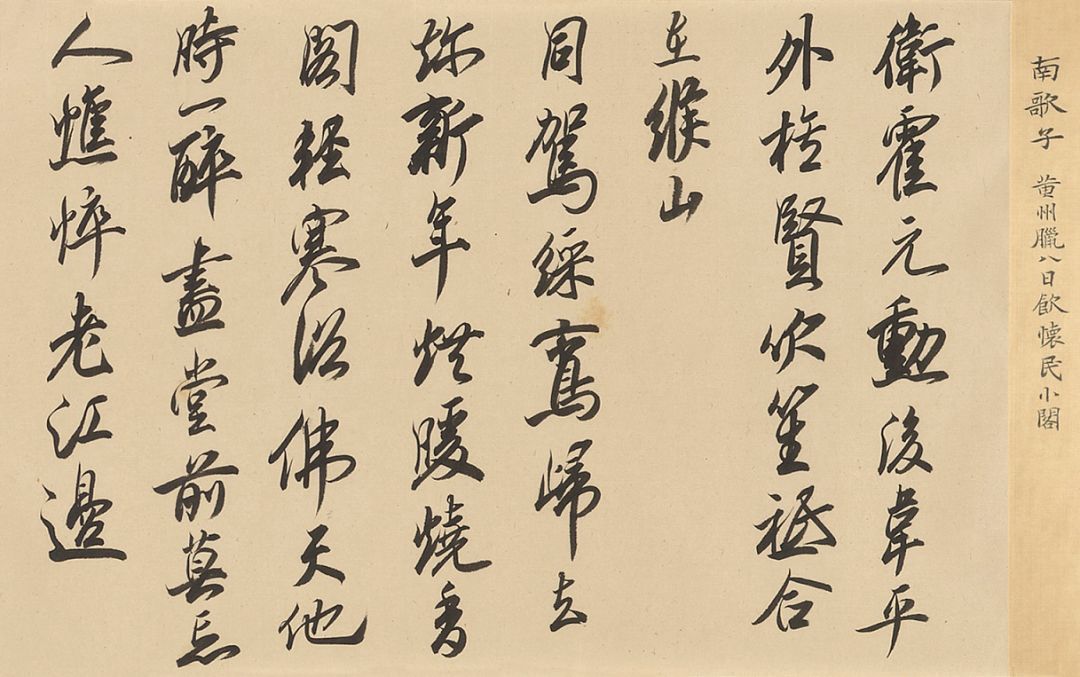 南歌子 黃州臘八日飲懷民小閣
衛霍元勳後韋平
外族賢吹笙祗合
在緱山
同駕綵鸞歸去
趂新年烘暖燒香
閣輕寒浴佛天他
時一醉畫堂前莫忘
人憔悴老江邊